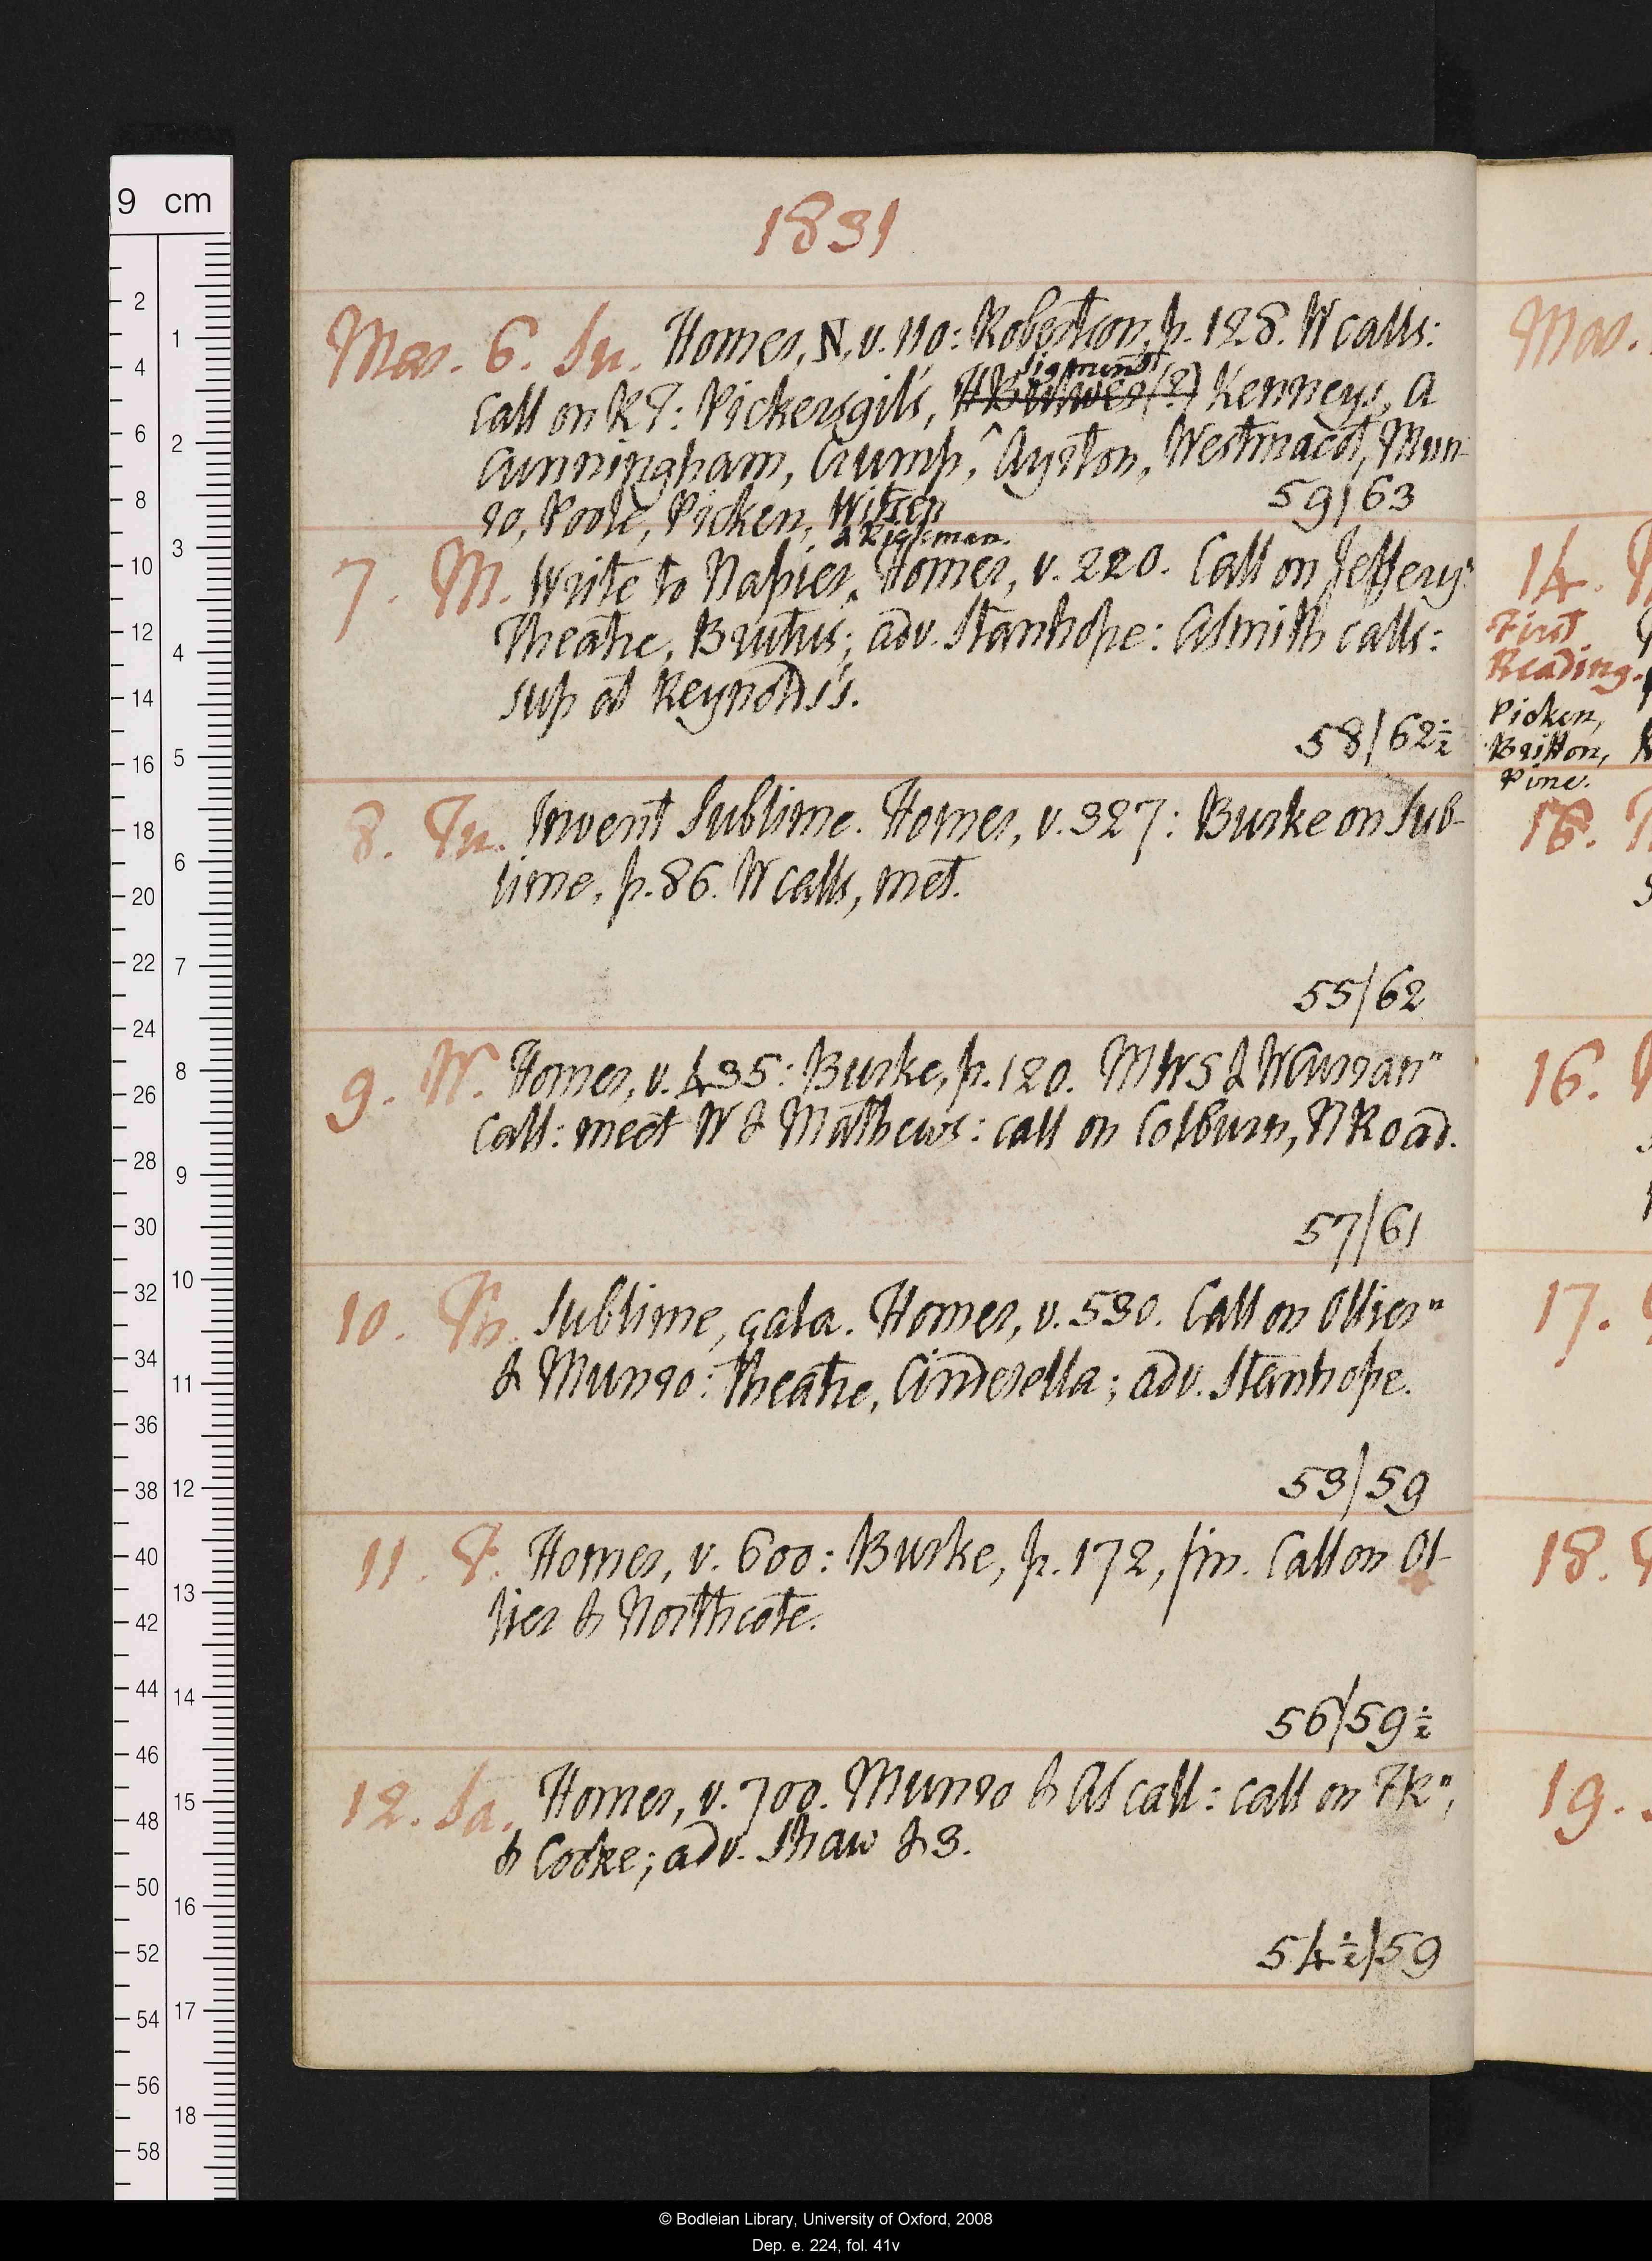 1831
Mar. 6. Su. Homer, N, v. 110: Robertson, p. 128. W calls:
Sigmond
call on R T: Pickersgil's, H Bulwer (?) Kenneys, A
Cunningham, Crump,^ Ayrton, Westmacot, Mun-
ro, Poole, Picken, Wiffen 59/63
& Rickman.
7. M. Write to Napier^. Homer, v. 220. Call on Jefferyn
Theatre, Brutus; adv. Stanhope: ASmith calls:
sup at Reynolds's.
58/62½
8. Tu. Invent Sublime. Homer, v. 327: Burke on Sub-
lime, p. 86. W calls, met.
55/62
9. W. Homer, v. 435: Burke, p. 120. MWS & WCurran n
call: meet W & Mathews: call on Colburn, N Road.
57/61
10. Th. Sublime, çala. Homer, v. 530. Call on Ollier n
& Munro: Theatre, Cinderella; adv. Stanhope.
53/59
11. F. Homer, v. 600: Burke, p. 172, fin. Call on Ol-
lier & Northcote.
56/59½
12. Sa. Homer, v. 700. Munro & AS call: call on FR n,
& Cooke; adv. Shaw & 3.
54½/59
Mar.
14.
First
Reading.
Picken,
Britton,
Pine.
16.
17.
18.
19.
9 cm
2
4
6
8
10
12
14
16
18
20
22
24
26
28
30
32
34
36
38
40
42
44
46
48
50
52
54
56
58
1
2
3
4
5
6
7
8
9
10
11
12
13
14
15
16
17
18
© Bodleian Library, University of Oxford, 2008
Dep. e. 224, fol. 41v